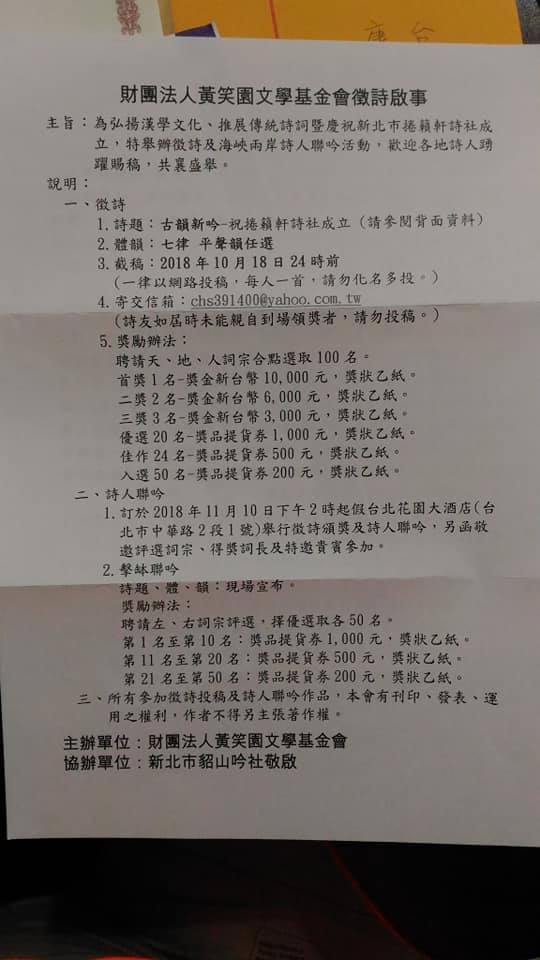 座 台
財團法人黃笑園文學基金會徵詩啟事
主旨：為弘揚漢學文化、推展傳統詩詞暨慶祝新北市捲籟軒詩社成
立，特舉辦徵詩及海峽兩岸詩人聯吟活動，歡迎各地詩人踴
躍賜稿，共襄盛舉。
說明：
一、徵詩
1.詩題：古韻新吟-祝捲籟軒詩社成立（請參閱背面資料）
2.體韻：七律 平聲韻任選
3.截稿：2018年10月18日24時前
（一律以網路投稿，每人一首，請勿化名多投。）
4.寄交信箱：chs391400@yahoo.com.tw
（詩友如屆時未能親自到場領獎者，請勿投稿。）
5.獎勵辦法：
聘請天、地、人詞宗合點選取100名。
首獎1名-獎金新台幣10,000元，獎狀乙紙。
二獎2名-獎金新台幣6,000元，獎狀乙紙。
三獎3名-獎金新台幣3,000元，獎狀乙紙。
優選20名-獎品提貨券1,000元，獎狀乙紙。
佳作24名-獎品提貨券500元，獎狀乙紙。
入選50名-獎品提貨券200元，獎狀乙紙。
二、詩人聯吟
1.訂於2018年11月10日下午2時起假台北花園大酒店(台
北市中華路2段1號)舉行徵詩頒獎及詩人聯吟，另函敬
邀評選詞宗、得獎詞長及特邀貴賓參加。
2.擊缽聯吟
詩題、體、韻：現場宣布。
獎勵辦法：
聘請左、右詞宗評選，擇優選取各50名。
第1名至第10名：獎品提貨券1,000元，獎狀乙紙。
第11名至第20名：獎品提貨券500元，獎狀乙紙。
第21名至第50名：獎品提貨券200元，獎狀乙紙。
三、所有參加徵詩投稿及詩人聯吟作品，本會有刊印、發表、運
用之權利，作者不得另主張著作權。
主辦單位：財團法人黃笑園文學基金會
協辦單位：新北市貂山吟社敬啟